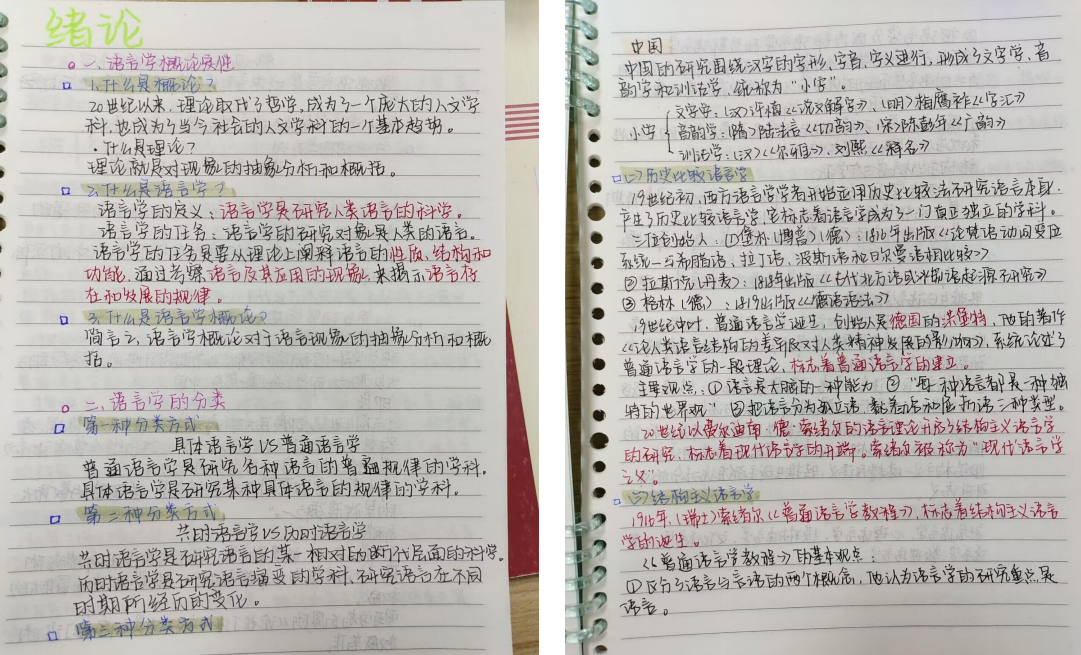 绪论
一、语言学概论属性
1.什么是概论?
20世纪以来,理论取代了哲学,成为了一个庞大的人文学
科,也成为了当今社会的人文学科的一个基本趋势。
·什么是理论?
理论就是对现象的抽象分析和概括。
2.什么是语言学?
语言学的定义:语言学是研究人类语言的科学。
语言学的任务:语言学的研究对象是人类的语言。
语言学的任务是要从理论上阐释语言的性质、结构和
功能,通过考察语言及其应用的现象,来揭示语言存
在和发展的规律。
3.什么是语言学概论?
简言之,语言学概论对于语言现象的抽象分析和概
括。
二、语言学的分类
第一种分类方式
具体语言学VS普通语言学
普通语言学是研究各种语言的普遍规律的学科。
具体语言学是研究某种具体语言的规律的学科。
第二种分类方式
共时语言学VS历时语言学
共时语言学是研究语言的某一相对的断代层面的科学。
历时语言学是研究语言演变的学科,研究语言在不同
时期所经历的变化。
第三种分类方式
中国
中国的研究围绕汉字的字形、字音、字义进行,形成了文字学、音
韵学和训诂学,统称为“小学”。
小学
文字学:(汉)许慎《说文解字》、(明)梅膺祚《字汇》
音韵学:(隋)陆法言《切韵》、(宋)陈彭年《广韵》
训诂学:(汉)《尔雅》、刘熙《释名》
(二)历史比较语言学
19世纪初,西方语言学学者开始应用历史比较法研究语言本身,
产生了历史比较语言学,它标志着语言学成为了一门真正独立的学科。
三位创始人:①葆朴(博普)(德):1816年出版《论梵语动词变位
系统—与希腊语、拉丁语、波斯语和日尔曼语相比较》
②拉斯克(丹麦):1818年出版《古代北方语或冰岛语起源研究》
③格林(德):1819出版《德语语法》
19世纪中叶,普通语言学诞生,创始人是德国的洪堡特,他的著作
《论人类语言结构的差异及对人类精神发展的影响》,系统论述了
普通语言学的一般理论,标志着普通语言学的建立。
主要观点:①语言是大脑的一种能力 ②“每一种语言都是一种独
特的世界观” ③把语言分为孤立语、黏着语和屈折语三种类型。
20世纪以费尔迪南·德·索绪尔的语言理论开启了结构主义语言学
的研究,标志着现代语言学的开端。索绪尔被称为“现代语言学
之父”。
(三)结构主义语言学
1916年,(瑞士)索绪尔《普通语言学教程》,标志着结构主义语言
学的诞生。
《普通语言学教程》的基本观点:
①区分了语言与言语的两个概念,他认为语言学的研究重点是
语言。